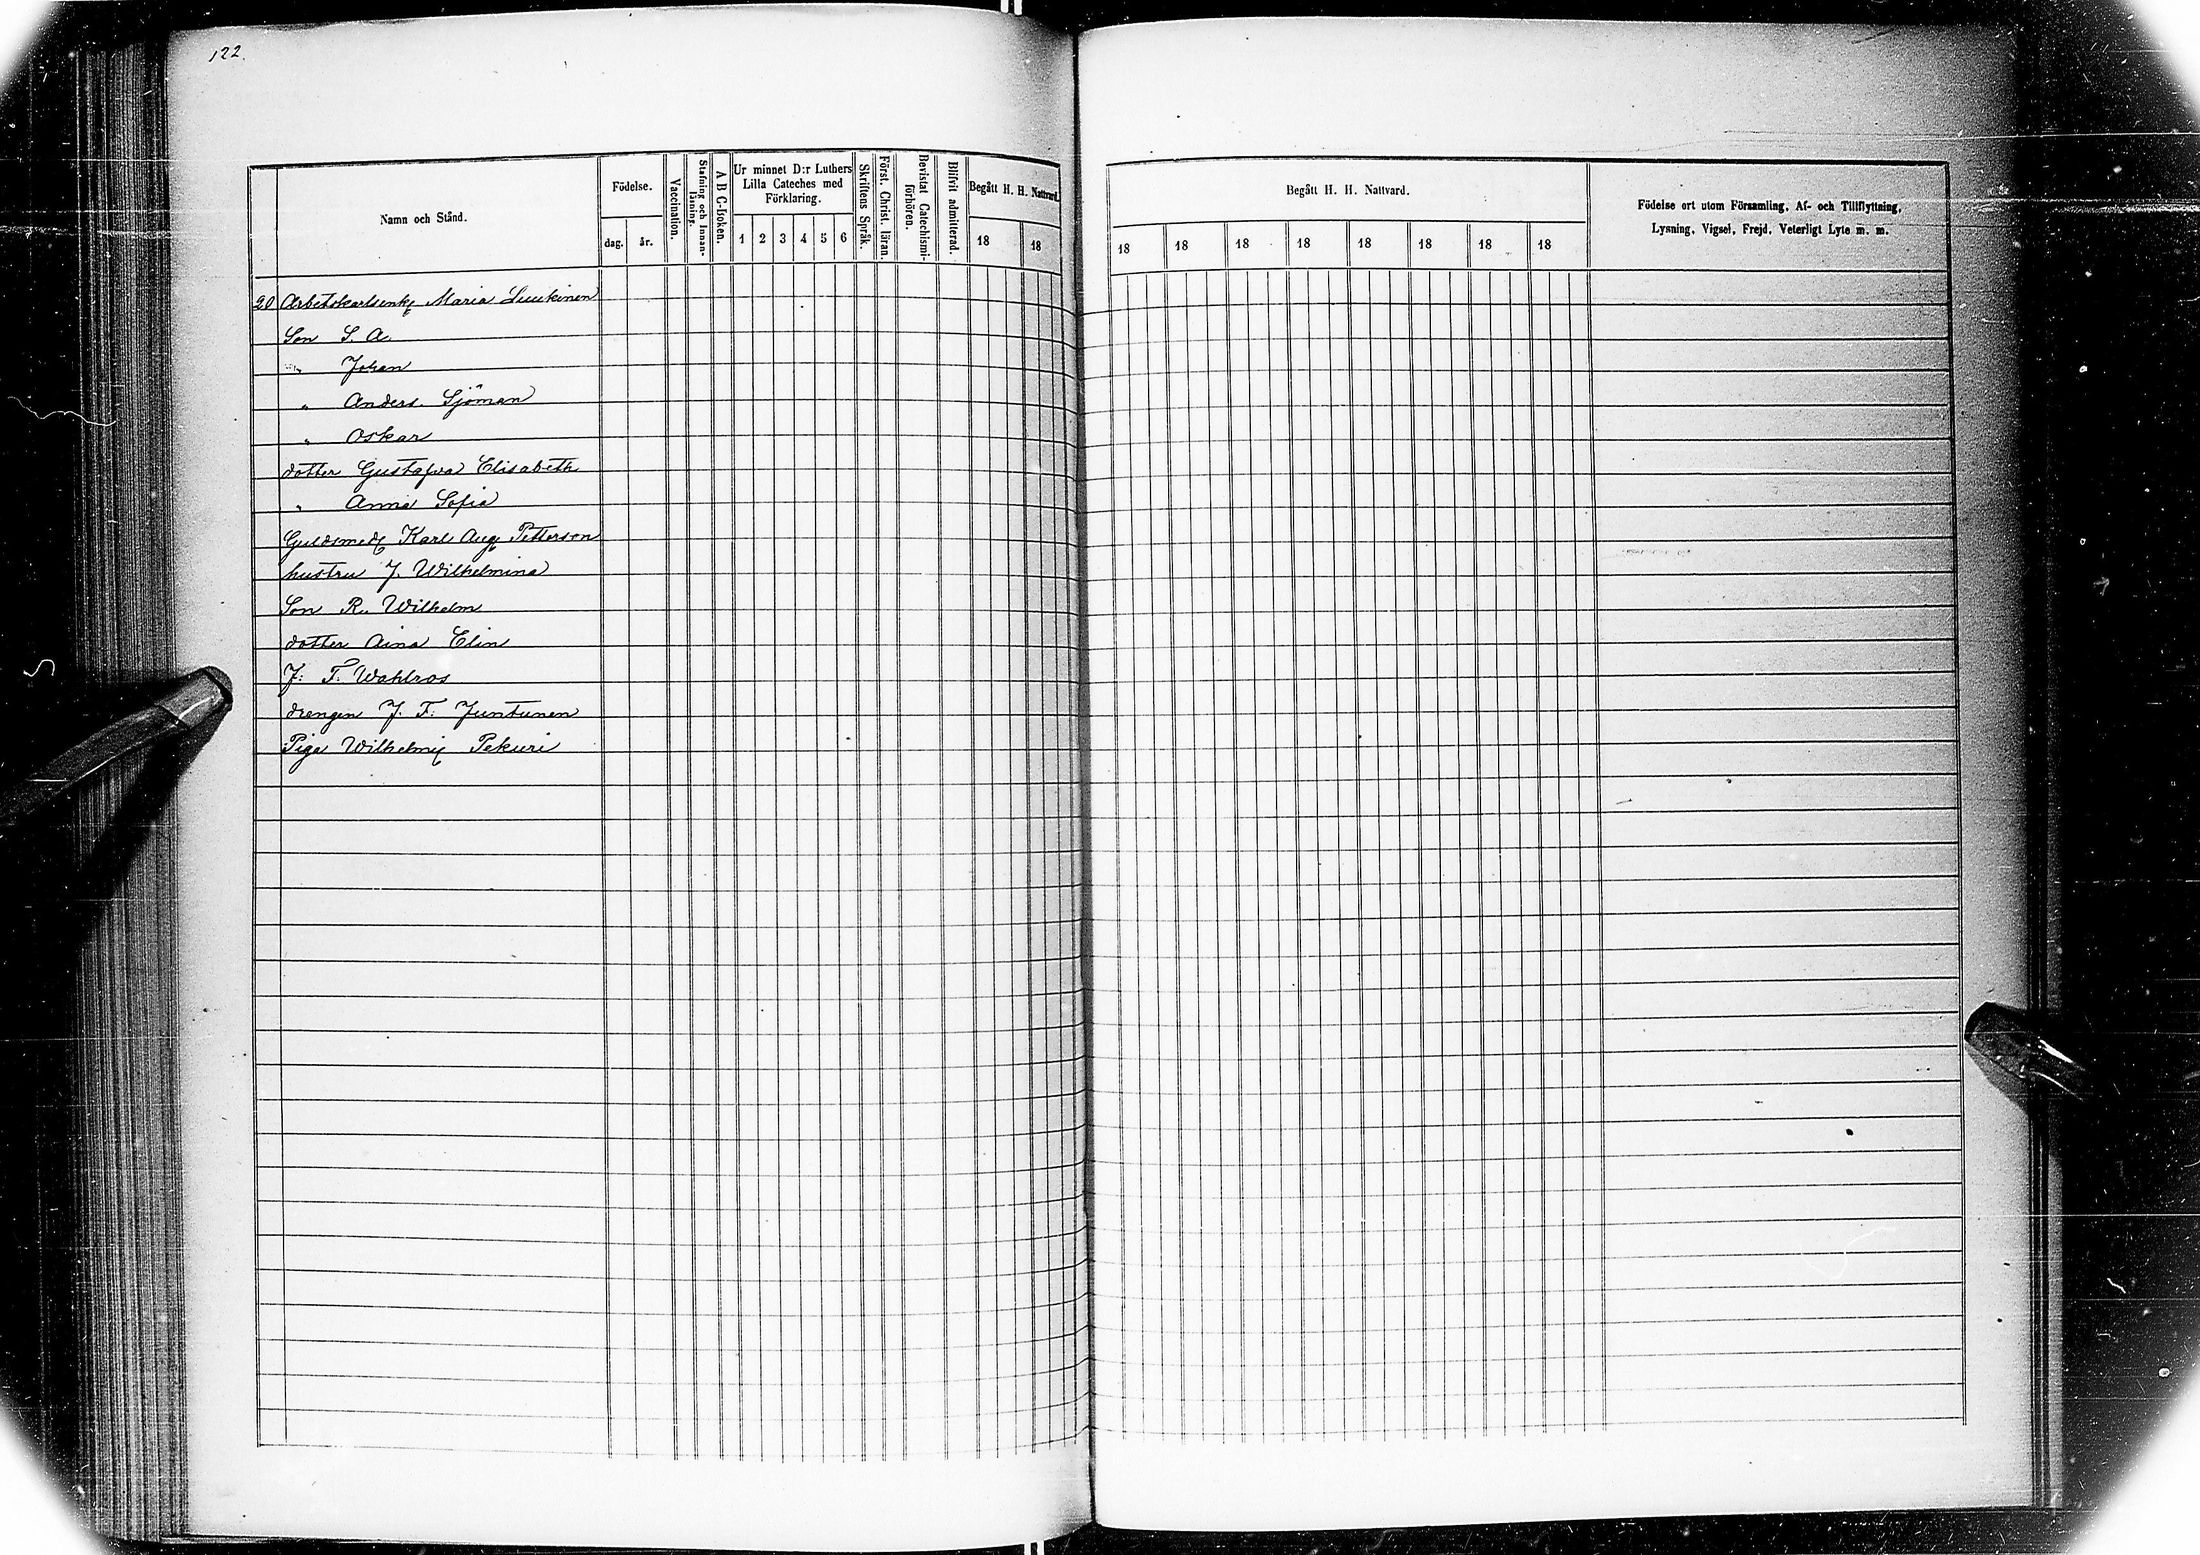 122.
Namn och Stånd.
Födelse.
dag. år.
Vaccination.
Stafning och Innanläsning.
A B C-boken.
Ur minnet D:r Luthers
Lilla Cateches med
Förklaring.
1 2 3 4 5 6
Skriftens Språk.
Först. Christ. läran.
Bevistat Catechismi-
förhören.
Blifvit admitterad.
Begått H. H. Nattvard.
18 18
20 Arbetskarlsenk Maria Luukinen
Son S. A.
" Johan
" Anders Sjöman
" Oskar
dotter Gustafva Elisabeth
" Anna Sofia
Guldsmed Karl Aug Petterson
hustru J. Wilhelmina
Son R. Wilhelm
dotter Aina Elin
J. F. Wahlros
drengen J. F. Juntunen
Piga Wilhelm Pekuri
Begått H. H. Nattvard.
18 18 18 18 18 18 18 18
Födelse ort utom Församling, Af- och Tillflyttning,
Lysning, Vigsel, Frejd, Veterligt Lyte m. m.